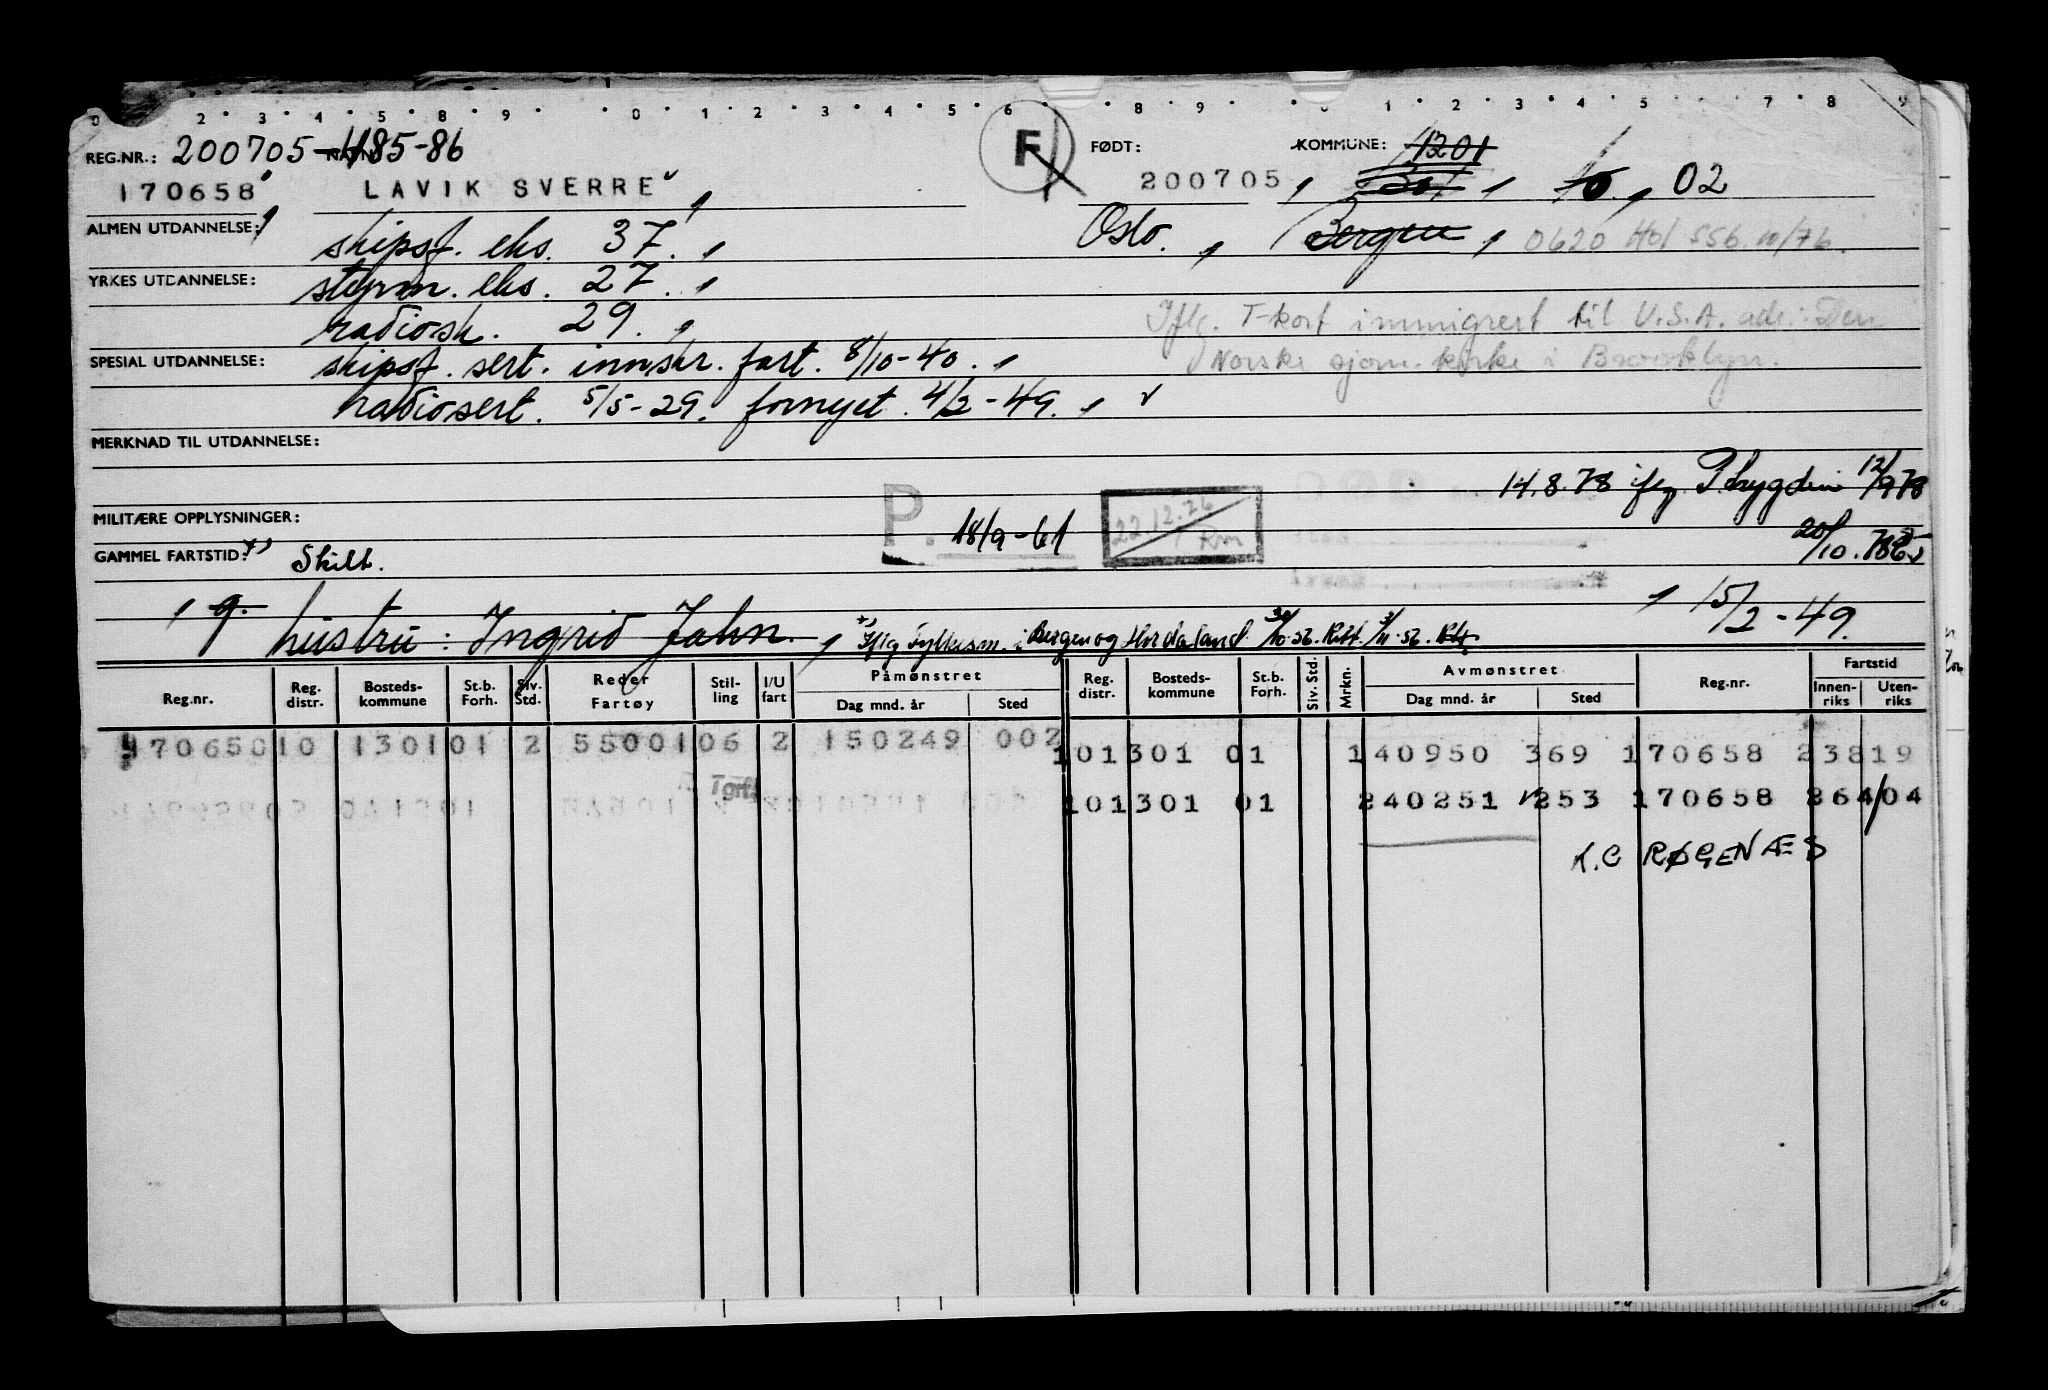 REG.NR.: 200705-48585-86 FØDT: KOMMUNE: 1201
170658 LAVIK SVERRE 200705, 02
F
ALMEN UTDANNELSE: skipsf. eks. 37. Oslo. Bergen, 0620 Hol 556 10/76.
YRKES UTDANNELSE: styrm. eks. 27.
radiosk. 29. Iflg. T-kort immigrert til U.S.A. adr.: Den
SPESIAL UTDANNELSE: skipsf. sert. innskr. fart. 8/10-40. Norske sjøm. kirke i Brooklyn.
radiosert. 5/5-29. fornyet. 4/2-49.
MERKNAD TIL UTDANNELSE:
14.8.78 ifg. Trygden 12/9 78
MILITÆRE OPPLYSNINGER: P. 18/9-61 22/12.76
GAMMEL FARTSTID: x) Skilt. 20/10.
, g. hustru: Ingrid Jahn. x) Iflg Fylkesm. i Bergen og Hordaland 30/10-56. 3/11-56. 15/2-49.
Reg.nr. Reg. distr. Bosteds-kommune St.b. Forh. Siv. Std. Reder Fartøy Stil-ling I/U fart Påmønstret Dag mnd. år Sted Reg. distr. Bosteds-kommune St.b. Forh. Siv. Std. Mrkn. Avmønstret Dag mnd. år Sted Reg.nr. Fartstid Innen-riks Uten-riks
170650 10 1301 01 2 55001 06 2 150249 002 10 1301 01 140950 369 170658 23819
Tgrf. 10 1301 01 240251 253 170658 264/04
K.C RØGENÆS